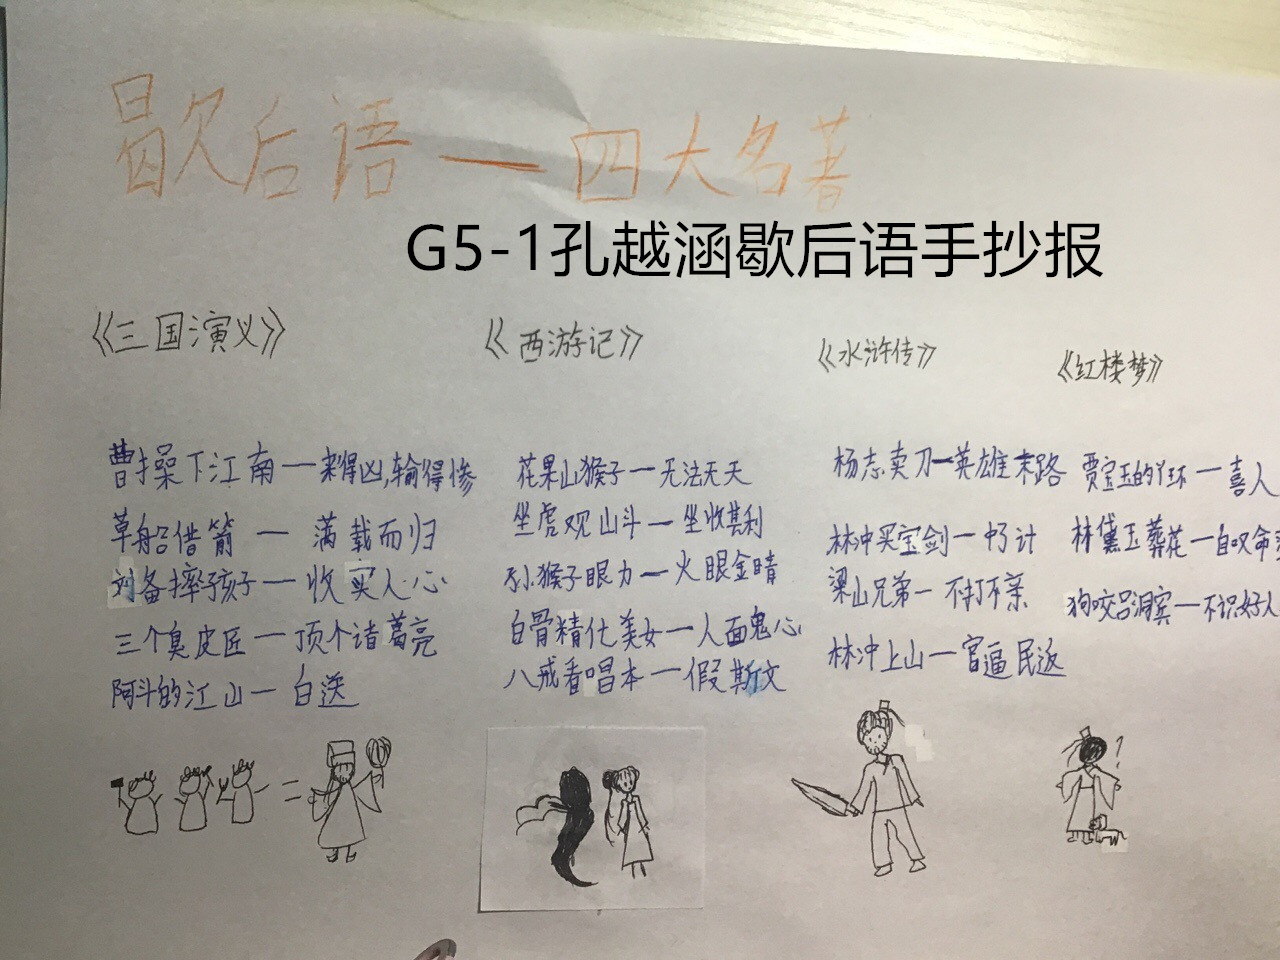 歇后语—四大名著
G5-1孔越涵歇后语手抄报
《三国演义》
曹操下江南—来得凶,输得惨
草船借箭—满载而归
刘备摔孩子—收买人心
三个臭皮匠—顶个诸葛亮
阿斗的江山—白送
《西游记》
花果山猴子—无法无天
坐虎观山斗—坐收其利
孙猴子眼力—火眼金睛
白骨精化美女—人面鬼心
八戒看唱本—假斯文
《水浒传》
杨志卖刀—英雄末路
林冲买宝剑—中计
梁山兄弟—不打不亲
林冲上山—官逼民返
《红楼梦》
贾宝玉的丫环—喜人
林黛玉葬花—自叹命
狗咬吕洞宾—不识好人
?